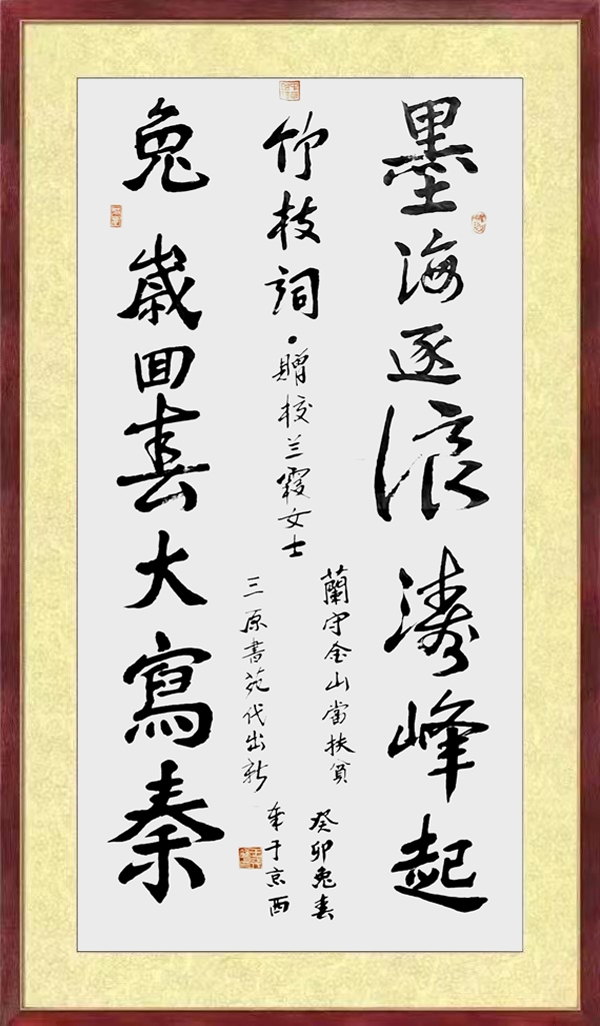 墨海逐浪濤峰起
竹枝詞·贈校兰霞女士
蘭守金山當扶貧
三原書苑代出新
癸卯兔春
于京西
兔歲囬春大寫秦